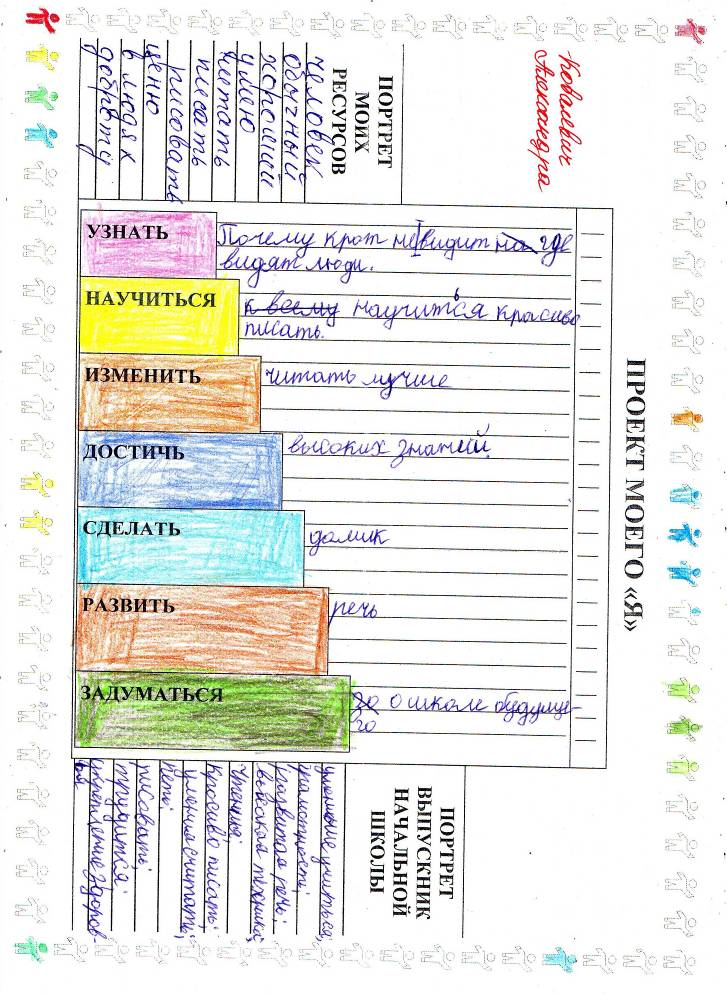 Ковалевич
Александра
ПРОЕКТ МОЕГО «Я»
ПОРТРЕТ
МОИХ
РЕСУРСОВ
человек
обычный
хороший
умею
читать
писать
рисовать
ценю
в людях
доброту
УЗНАТЬ
Почему крот не видит на где
видят люди.
НАУЧИТЬСЯ
к всему научиться красиво
писать.
ИЗМЕНИТЬ
читать лучше
ДОСТИЧЬ
высоких знаний.
СДЕЛАТЬ
домик
РАЗВИТЬ
речь
ЗАДУМАТЬСЯ
го о школе будуще-
го
ПОРТРЕТ
ВЫПУСКНИК
НАЧАЛЬНОЙ
ШКОЛЫ
умение учиться;
грамотность;
развитая речь;
высокая техника
чтения;
красиво писать;
умения считать;
петь;
рисовать;
трудится;
укрепление здоров-
ья